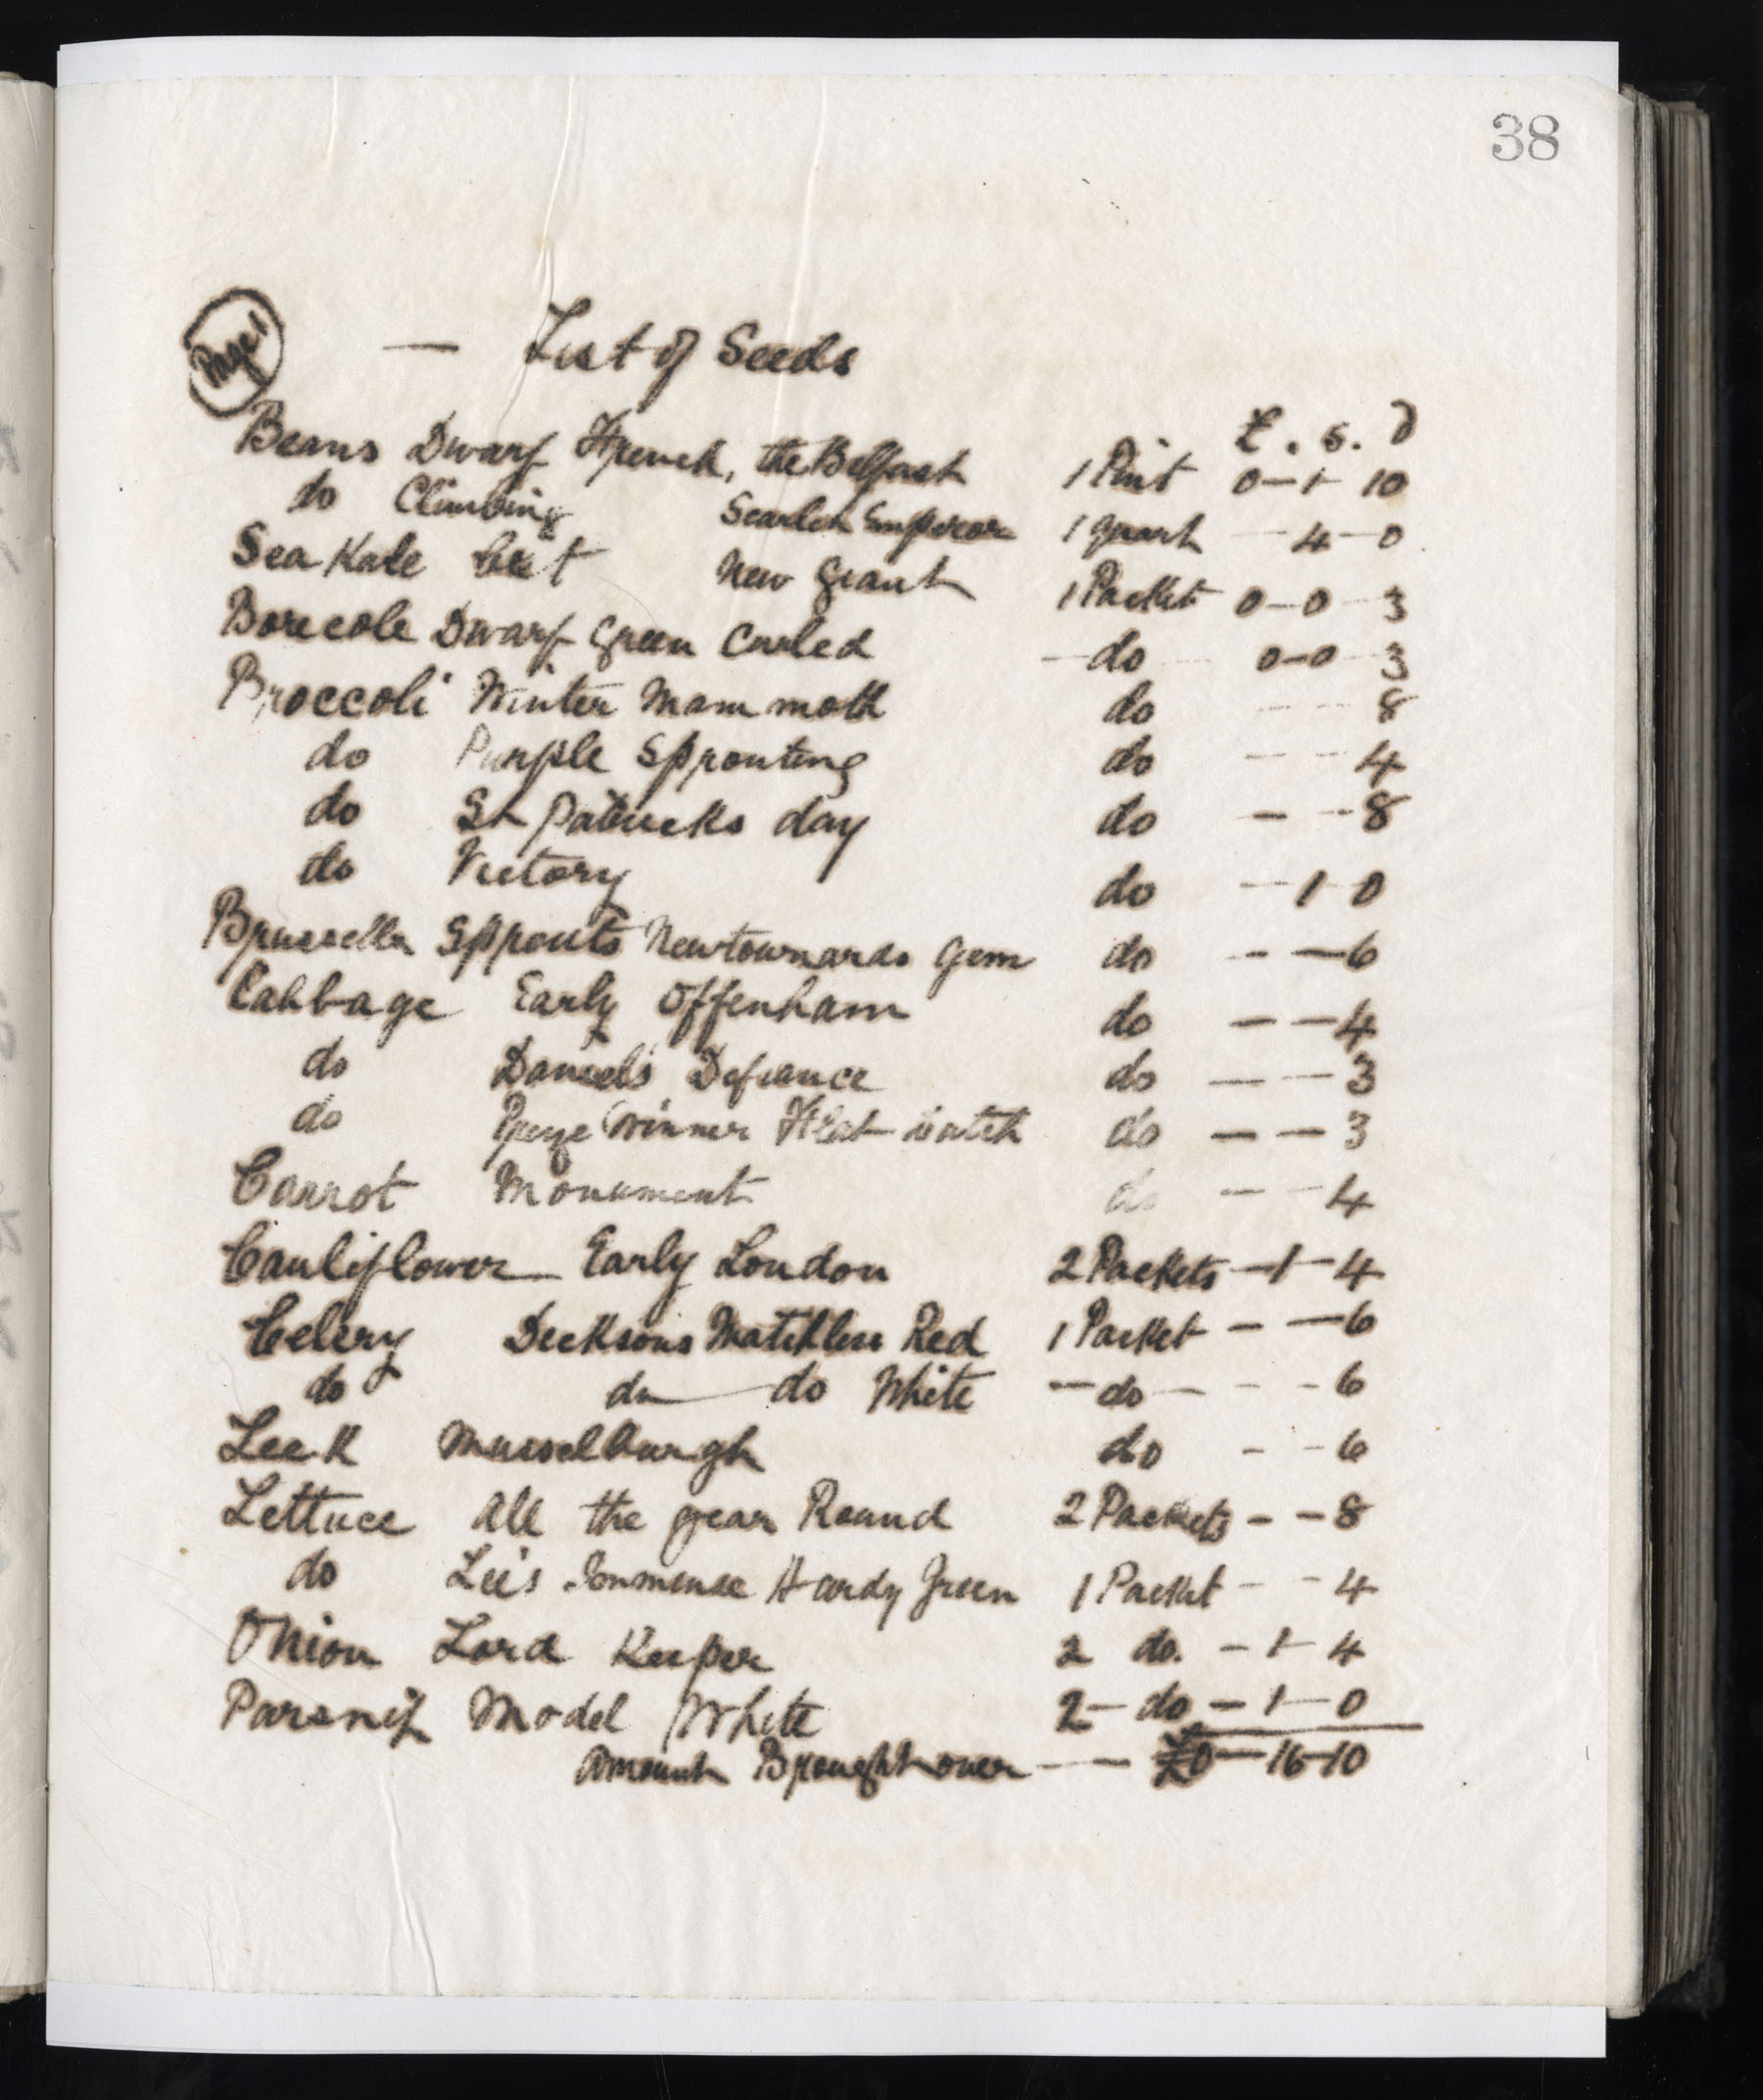 38
Page 1
— List of Seeds
£ . s. d
Beans Dwarf French, the Belfast 1 Pint 0-1-10
do Climbing Scarlet Emperor 1 quart - 4-0
Sea Kale Beet New Giant 1 Packet 0-0-3
Borecole Dwarf Green Curled - do 0-0 3
Broccoli Winter Mammoth do - - 8
do Purple Sprouting do - - 4
do St Patricks day do - - 8
do Victory do - 1 0
Brussells Sprouts Newtownards Gem do - - 6
Cabbage Early Offenham do - - 4
do Daniels Defiance do - - 3
do Prize Winner Flat Dutch do - - 3
Carrot Monument do - - 4
Cauliflower Early London 2 Packets - 1 - 4
Celery Dicksons Matchless Red 1 Packet - - 6
do do do White - do - - - 6
Leek Musselburgh do - - 6
Lettuce All the year Round 2 Packets - - 8
do Lee's Immense Hardy Green 1 Packet - - 4
Onion Lord Keeper 2 do. - 1 - 4
Parsnip Model White 2 - do - 1 - 0
Amount Brought over — £0 - 16 - 10